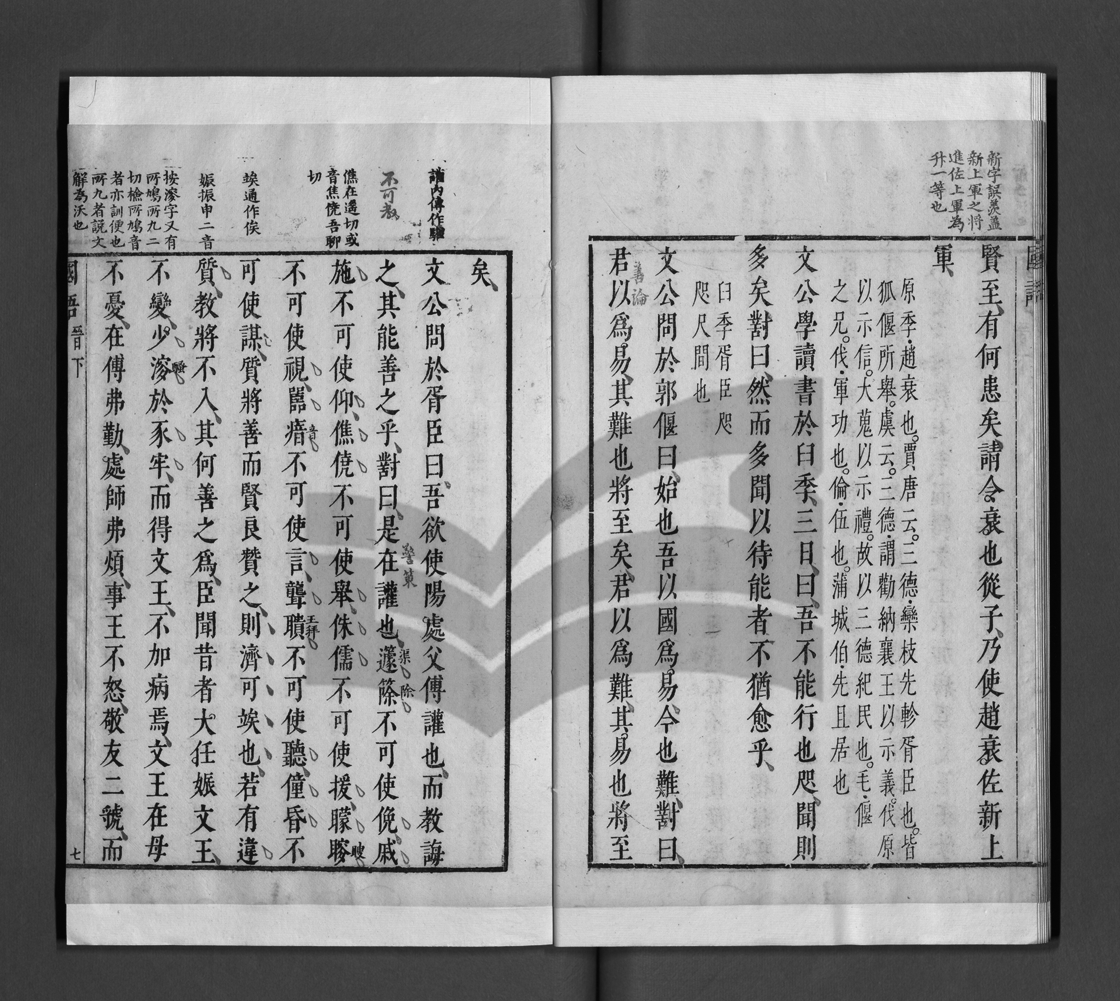 新字誤羨蓋
新上軍之將
進佐上軍為
升一等也
國語
賢至有何患矣請令衰也從子乃使趙衰佐新上
軍
原季趙衰也賈唐云三德欒枝先軫胥臣也皆
狐偃所舉虞云三德謂勸納襄王以示義伐原
以示信大蒐以示禮故以三德紀民也毛偃
之兄伐軍功也倫伍也蒲城伯先且居也
文公學讀書於臼季三日曰吾不能行也咫聞則
多矣對曰然而多聞以待能者不猶愈乎
臼季胥臣咫
咫尺間也
文公問於郭偃曰始也吾以國為易今也難對曰
善論
君以爲易其難也將至矣君以爲難其易也將至
矣
讙內傳作驩
文公問於胥臣曰吾欲使陽處父傅讙也而教誨
警策
之其能善之乎對曰是在讙也蘧蒢不可使俛戚
渠
除
不可教
施不可使仰僬僥不可使舉侏儒不可使援矇瞍
僬在遙切或
音焦僥吾聊
切
不可使視嚚瘖不可使言聾聵不可使聽僮昏不
音
可使謀質將善而賢良贊之則濟可竢也若有違
竢通作俟
質教將不入其何善之爲臣聞昔者大任娠文王
娠振申二音
不變少溲於豕牢而得文王不加病焉文王在母
按溲字又有
所鳩所九二
切檢所鳩音
者亦訓便也
所九者說文
解為沃也
不憂在傅弗勤處師弗煩事王不怒敬友二虢而
國語 晉下
七